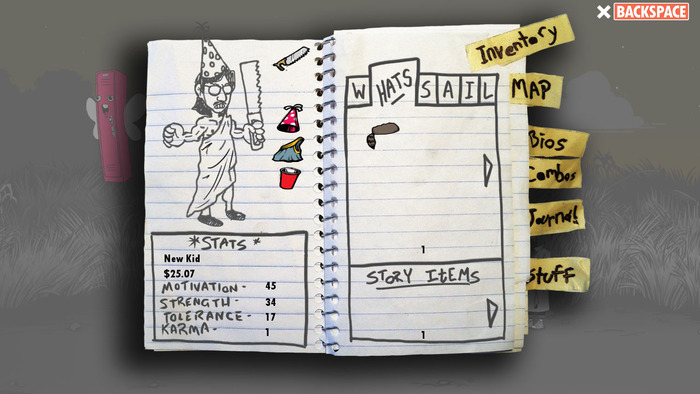 BACKSPACE
Inventory
MAP
Bios
Combos
Journal!
Stuff
W HATS S A I L
1
STORY ITEMS
1
*STATS*
New Kid
$25.07
MOTIVATION - 45
STRENGTH - 34
TOLERANCE - 17
KARMA - 1